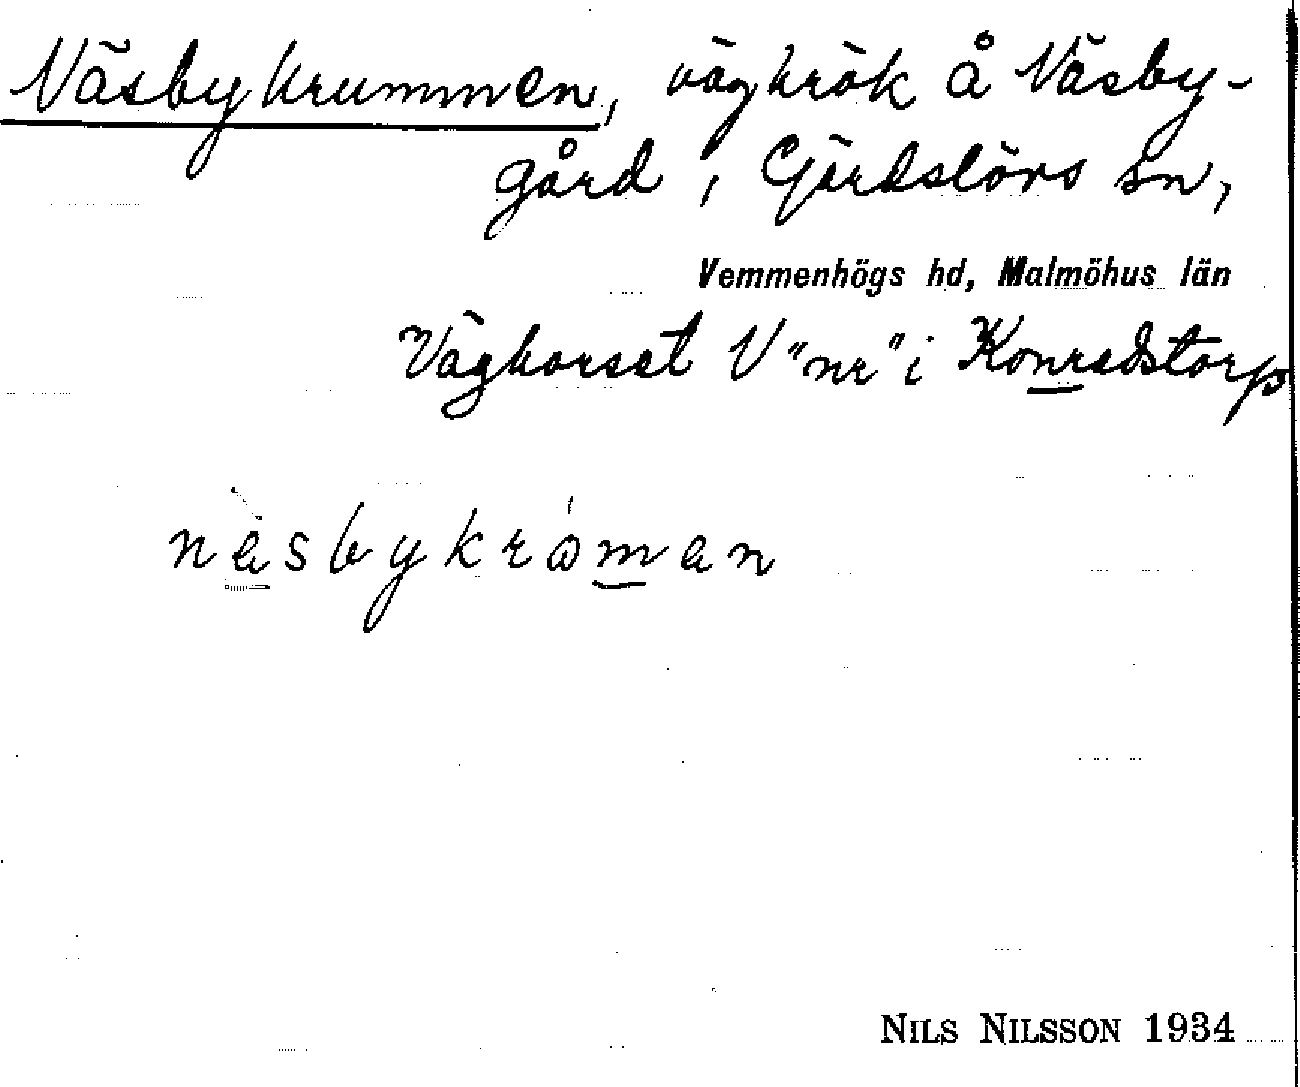 Näsbykrummen, vägkrök å Näsby-
gård, Gärdslövs sn,
Vemmenhögs hd, Malmöhus län
Vägkorset V "nr" i Konradstorp
næ̀sbykrómen
NILS NILSSON 1934